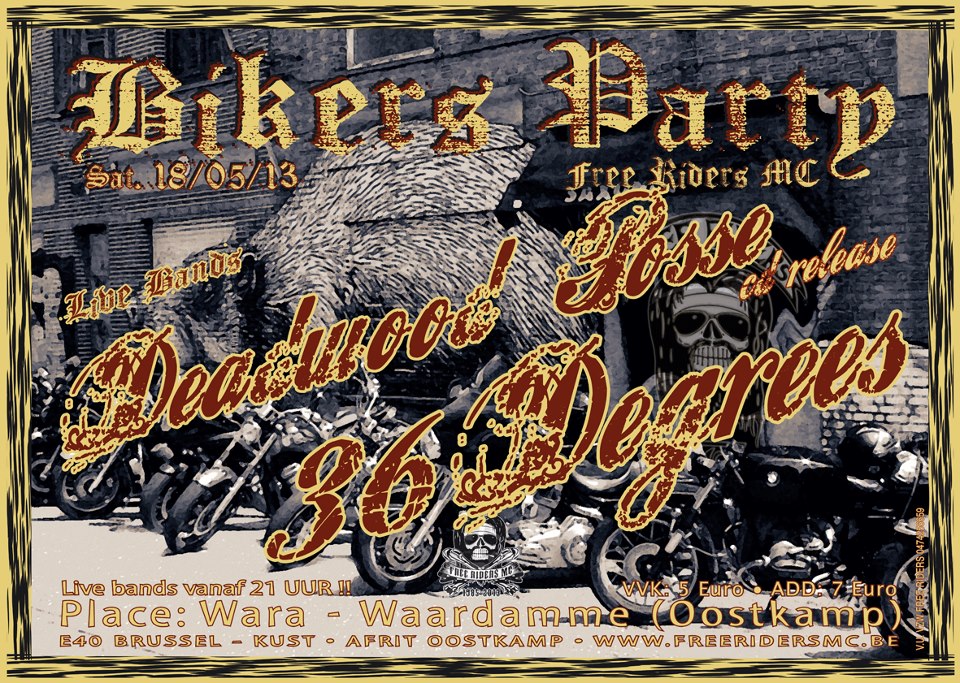 Bikers Party
Sat. 18/05/13
Free Riders MC
Live Bands
Deadwood Posse
cd release
36 Degrees
FREE RIDERS MC
Live bands vanaf 21 UUR !!
VVK: 5 Euro • ADD: 7 Euro
Place: Wara - Waardamme (Oostkamp)
E40 BRUSSEL - KUST - AFRIT OOSTKAMP - WWW.FREERIDERSMC.BE
FREE RIDERS